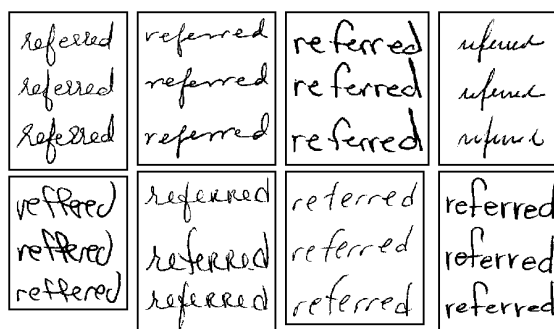 referred
referred
referred
referred
referred
referred
referred
referred
referred
referred
referred
referred
reffered
reffered
reffered
referred
referred
referred
referred
referred
referred
referred
referred
referred